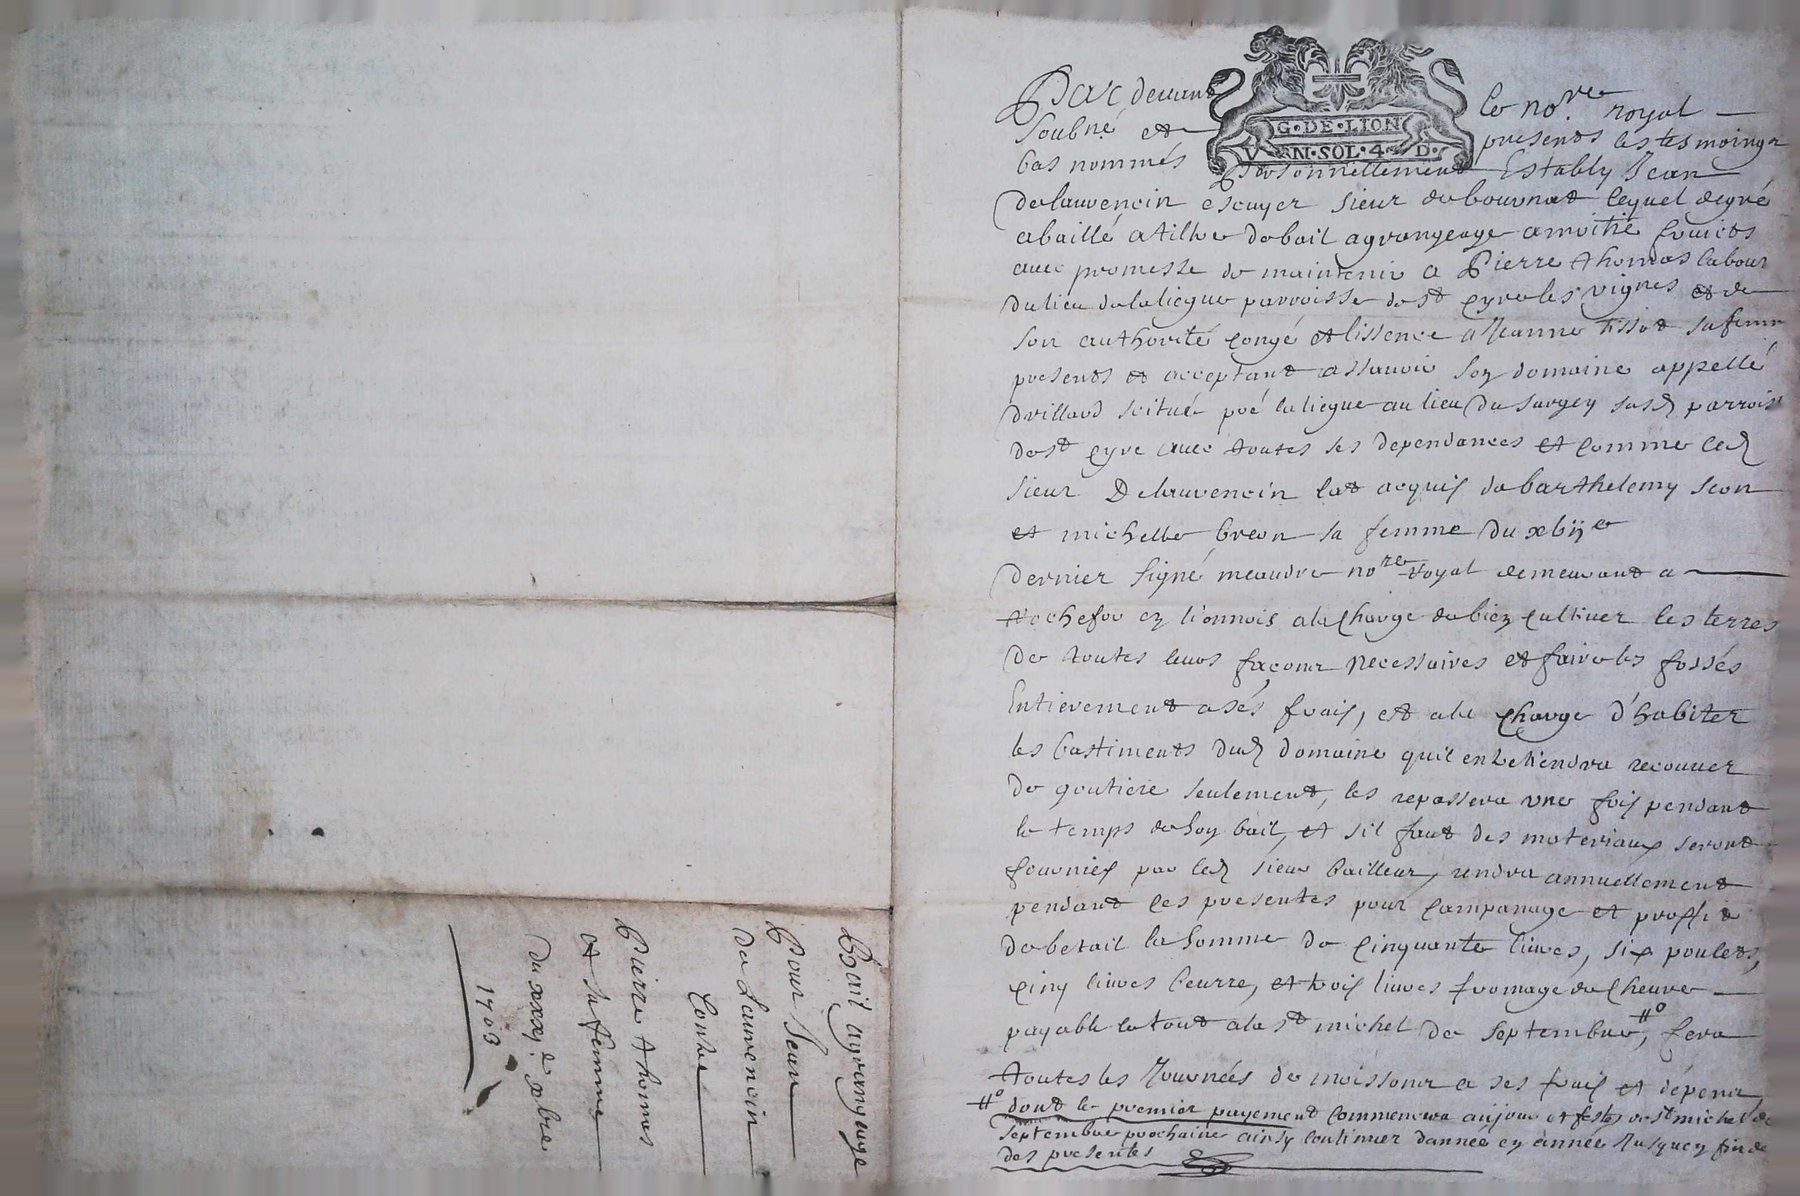 Bail agrangeage
Pour Jean
De Lauvencin
Contre
Pierre thomas
et sa femme
Du xxxj.e xbre
1703
Par devant le nore royal
soubné et presents les tesmoings
bas nommés personnellement Estably Jean
delauvencin escuyer sieur de bournat lequel degré
abaillé atiltre debail agrangeage amoitié fruicts
avec promesse de maintenir a Pierre thomas labour
du lieu delaliegue parroisse de st cyre les vignes et de
son authorité congé et lissence a Jeanne tissot sa femme
presents et acceptant assavoir son domaine appellé
drillard scitué laliegue au lieu du surgey susd parroisse
de st cyre avec toutes ses dependances et comme led
sieur Delauvencin lat acquis de barthelemy
et michelle breon sa femme du xbij e
dernier signé meaudre nore Royal demeurant a
Rochefor en lionnois ala charge de bien cultiver les terres
de toutes leurs façons necessaires et faire les fossés
Entierement asés frais, et ala charge d'habiter
les bastiments dud domaine quil entretiendra recouvert
de goutiere seulement, les repassera une fois pendant
le temps de son bail, et sil faut des materiaux seront
fournies par led sieur bailleur, rendra annuellement
pendant ces presentes pour campanage et proffit
de betail la somme de cinquante livres, six poulets,
cinq livres beurre, et trois livres fromage de chevre
payable le tout ala st michel de septembre #o, fera
toutes les Journées de moissons a ses frais et dépens,
#o dont le premier payement commencera aujour et feste de st michel de
septembre prochaine ainsy continuer dannée en année Jusquen fin de
des presentes
G·DE·LION
VN·SOL·4·D·